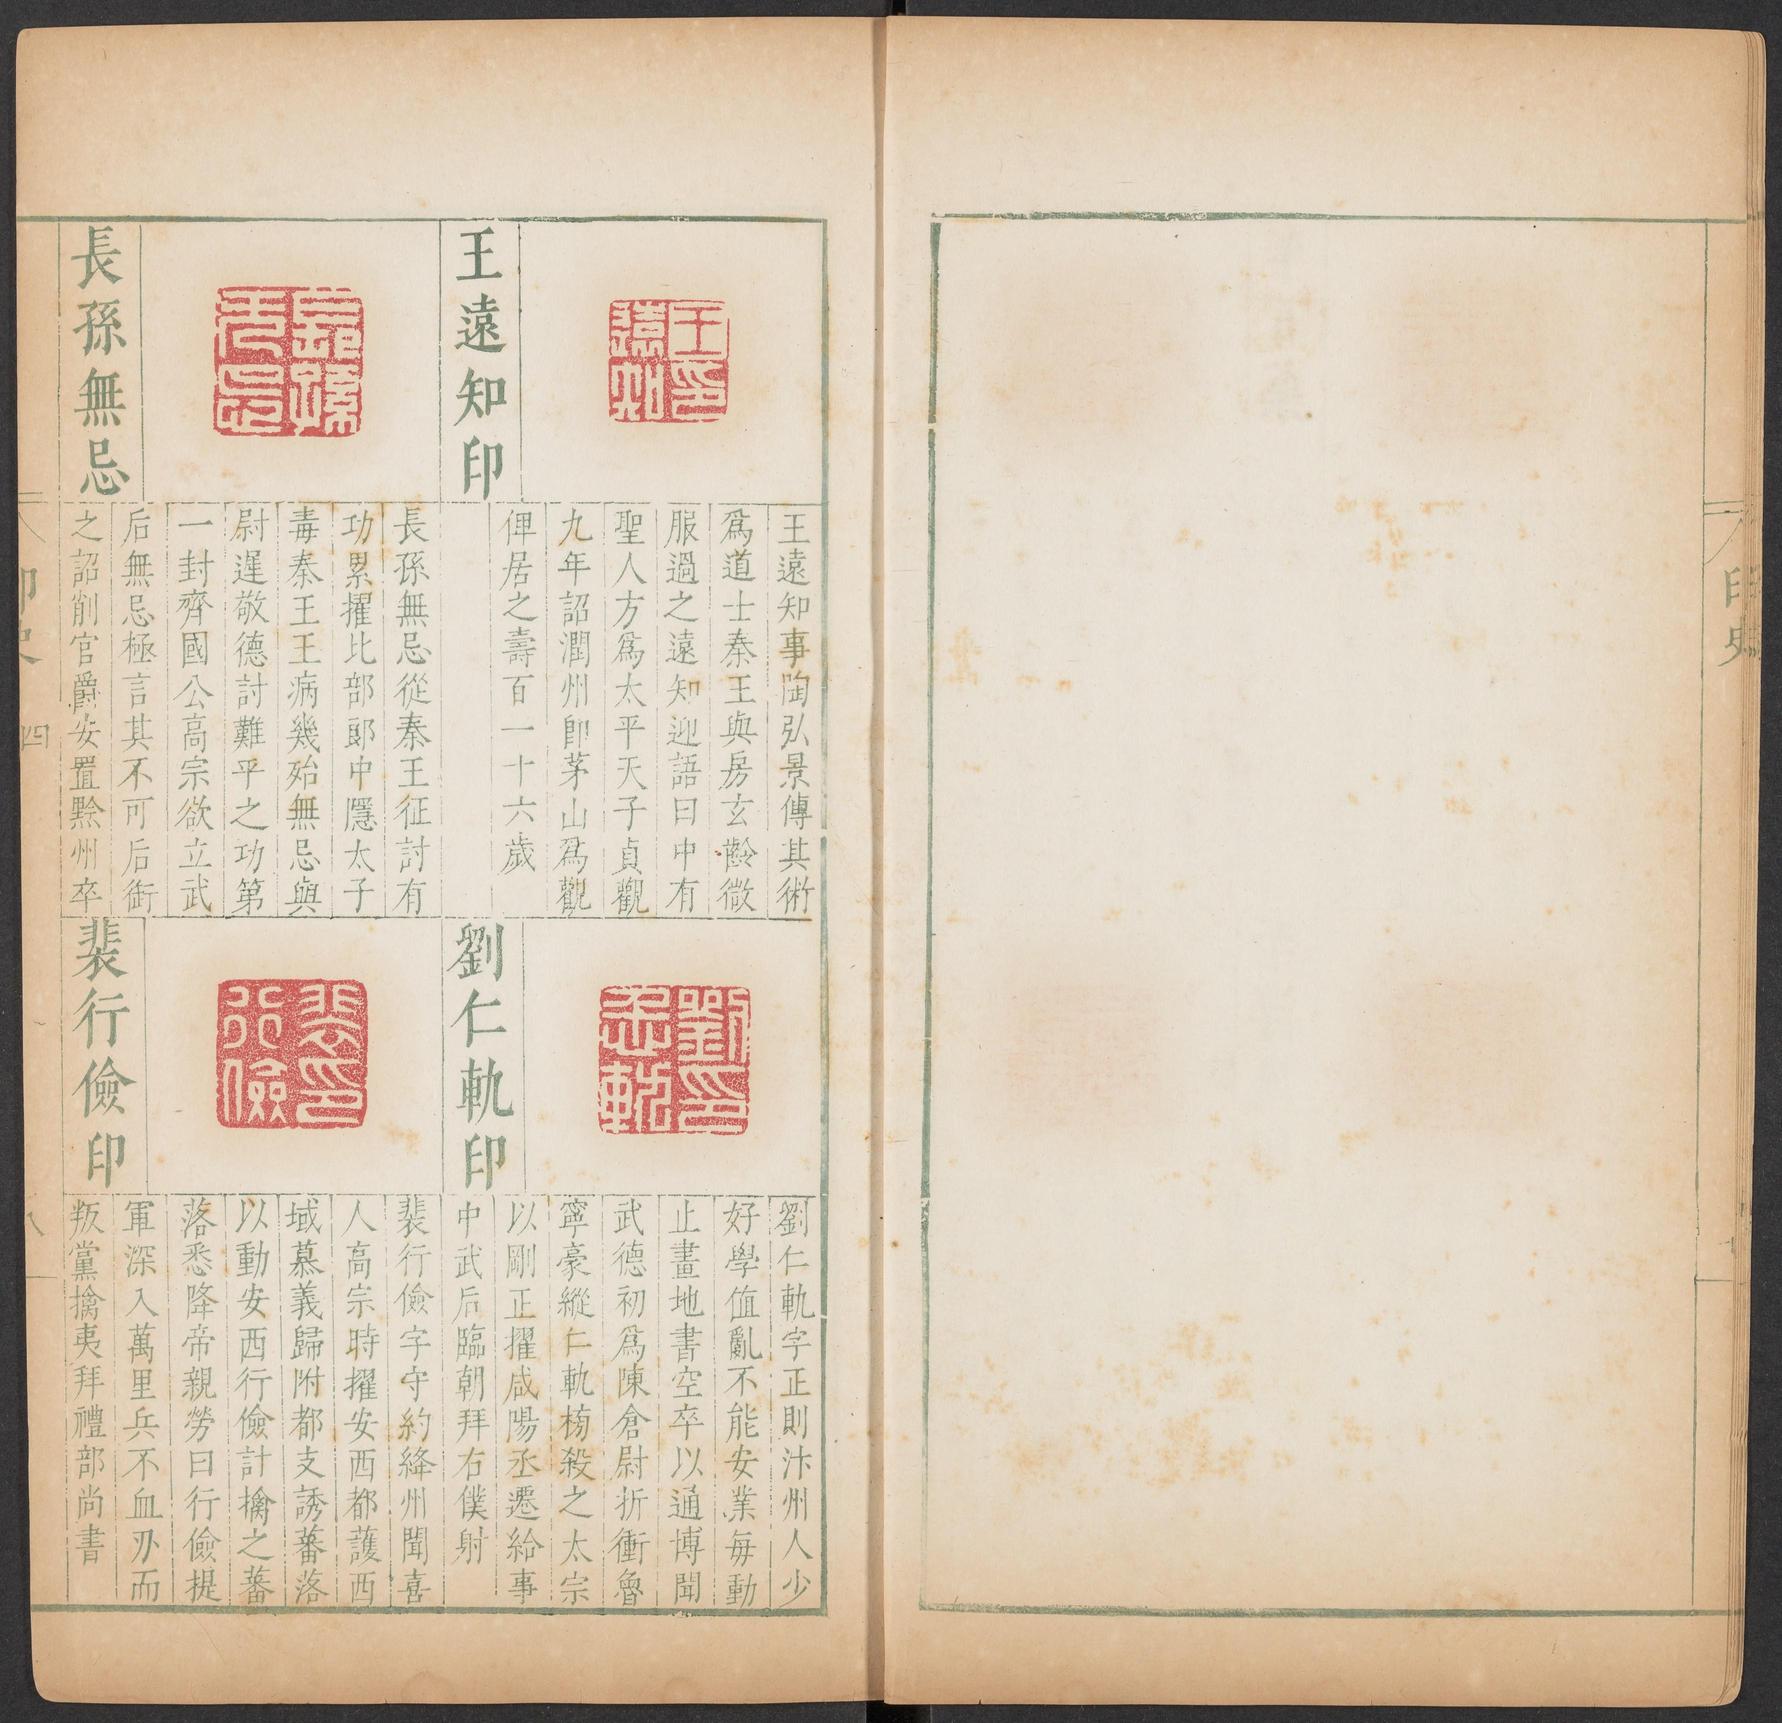 印史
王遠知印
王遠知事陶弘景傳其術
爲道士秦王與房玄齡微
服過之遠知迎語曰中有
聖人方爲太平天子貞觀
九年詔潤州即茅山爲觀
俾居之壽百一十六歲
長孫無忌
長孫無忌從秦王征討有
功累擢比部郎中隱太子
毒秦王王病幾殆無忌與
尉遲敬德討難平之功第
一封齊國公高宗欲立武
后無忌極言其不可后銜
之詔削官爵安置黔州卒
劉仁軌印
劉仁軌字正則汴州人少
好學值亂不能安業每動
止畫地書空卒以通博聞
武德初爲陳倉尉折衝魯
寧豪縱仁軌榜殺之太宗
以剛正擢咸陽丞遷給事
中武后臨朝拜右僕射
裴行儉印
裴行儉字守約絳州聞喜
人高宗時擢安西都護西
域慕義歸附都支誘蕃落
以動安西行儉計擒之蕃
落悉降帝親勞曰行儉提
軍深入萬里兵不血刃而
叛黨擒夷拜禮部尚書
印史
四
八